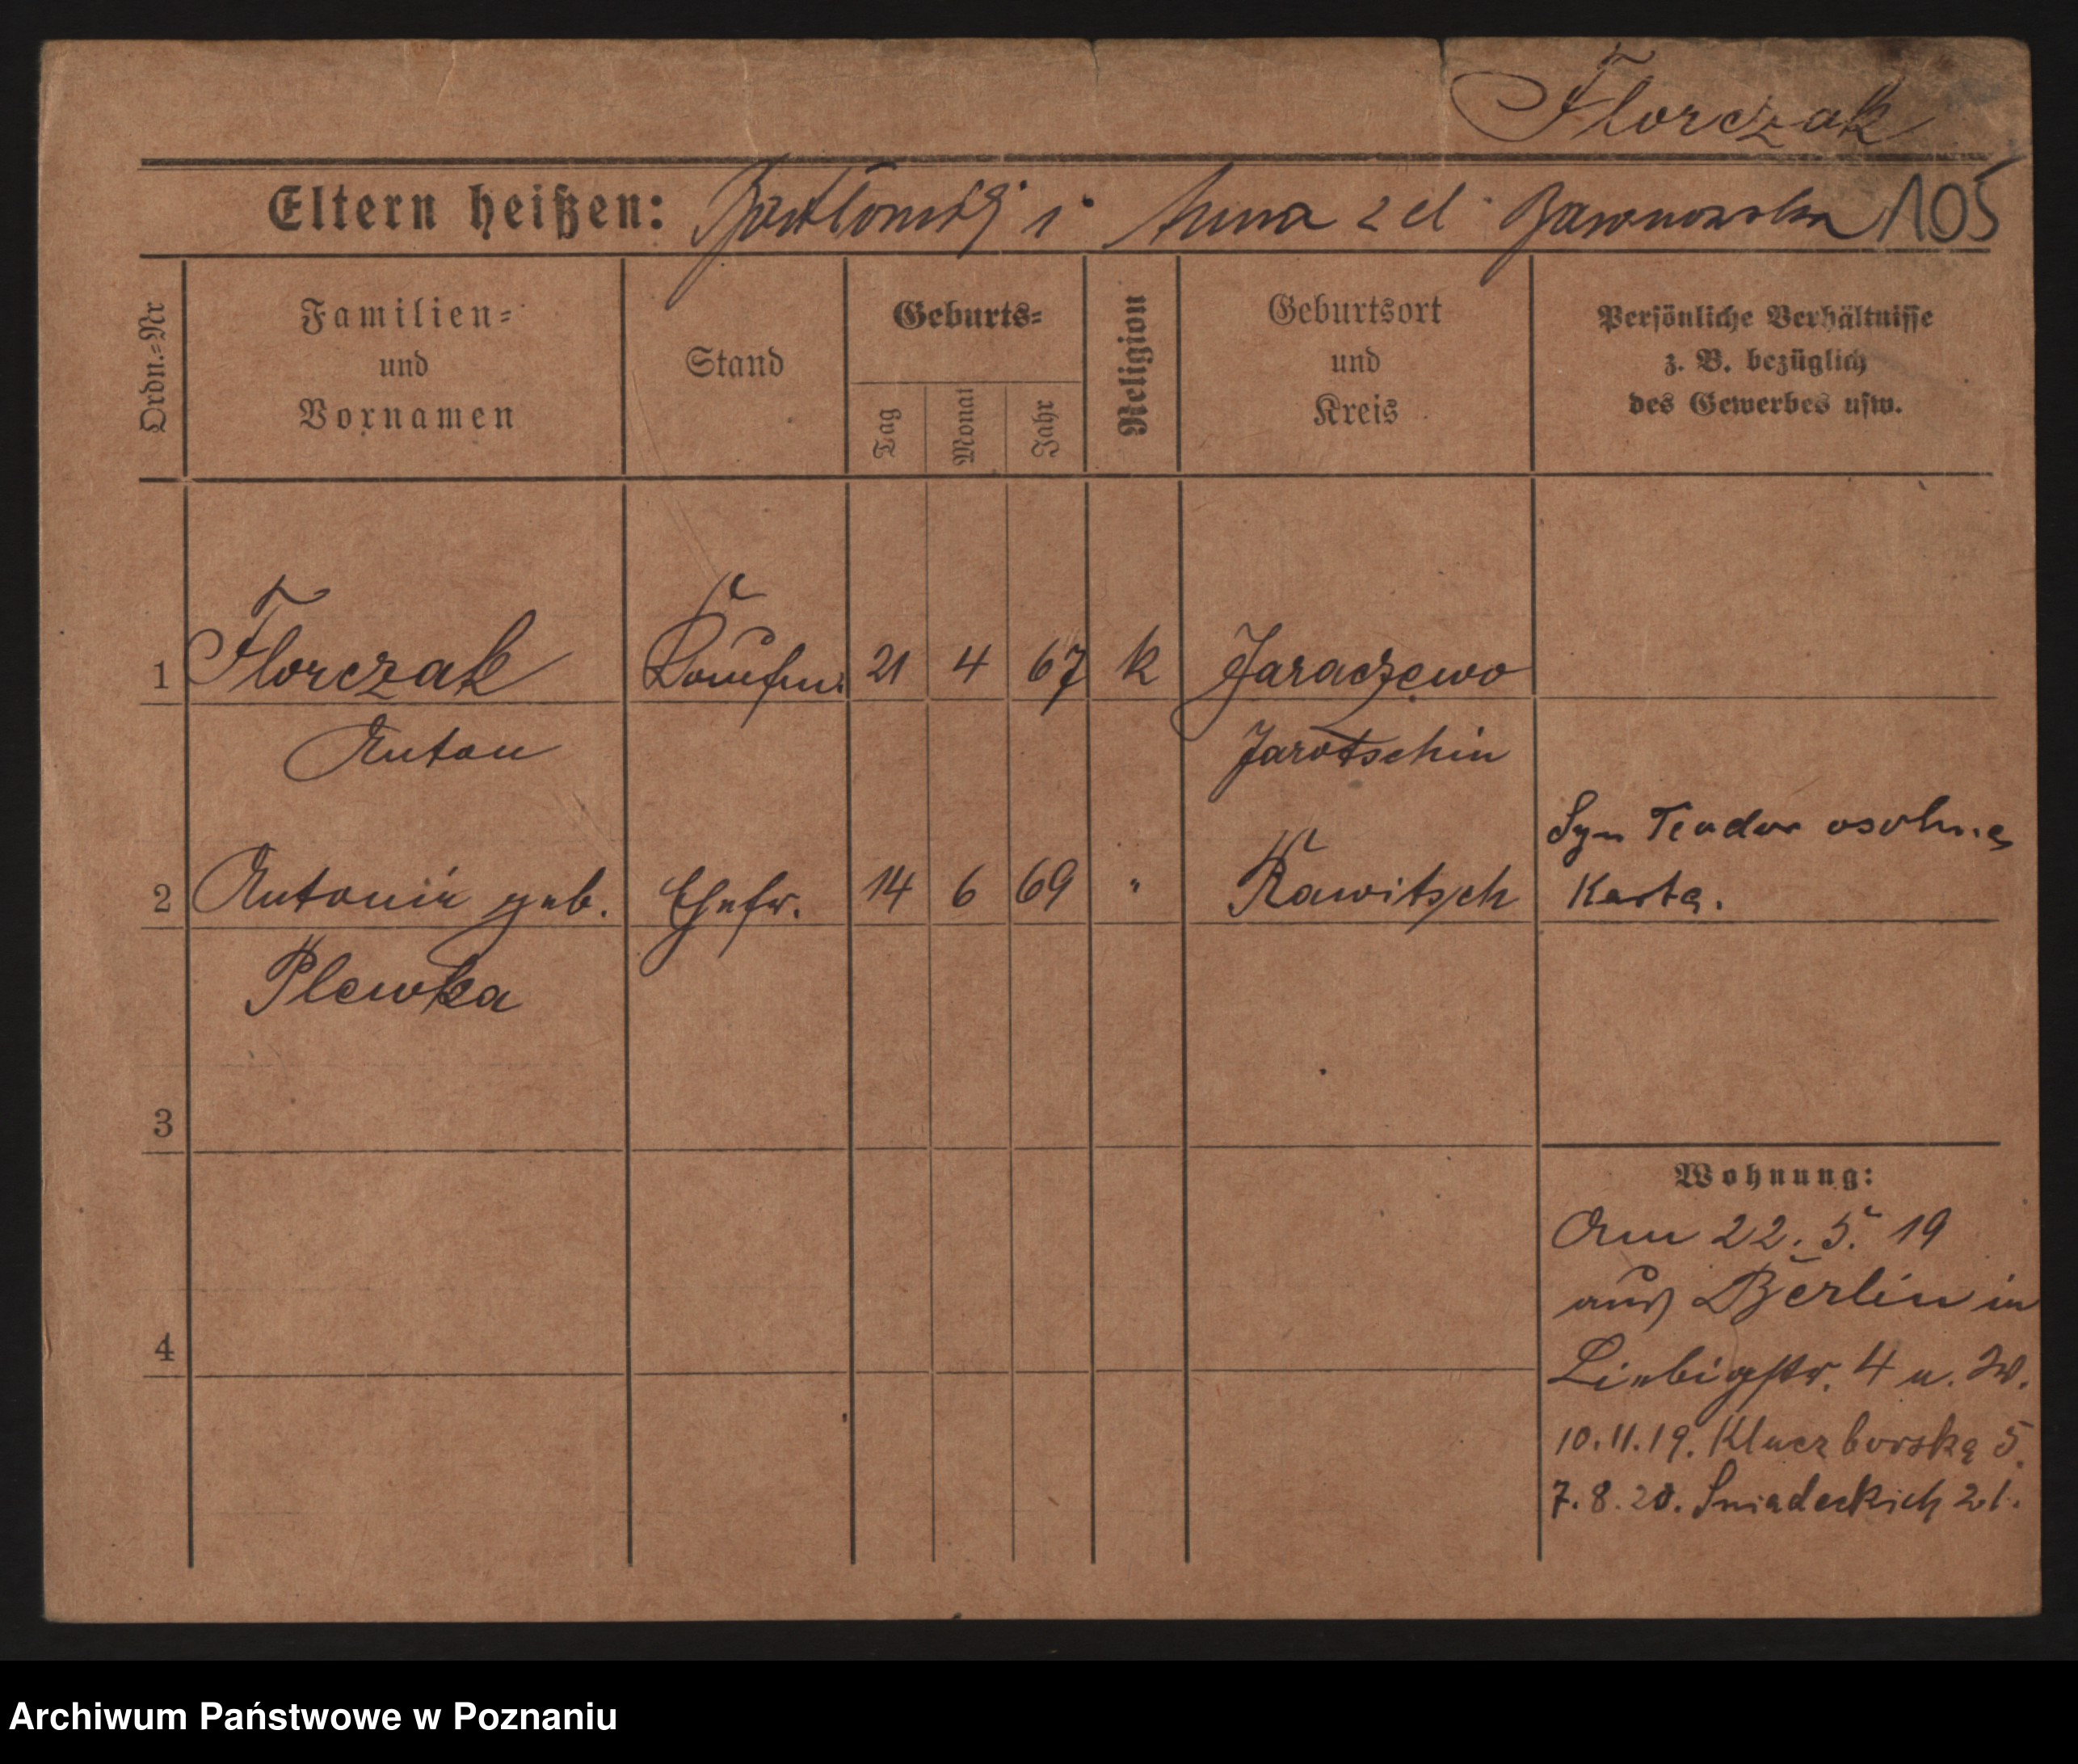 Florczak
Eltern heißen: Bartłomiej i Anna z d. Baranowska 105
Ordn.=Nr
Familien=
und
Vornamen
Stand
Geburts=
Tag
Monat
Jahr
Religion
Geburtsort
und
Kreis
Persönliche Verhältnisse
z. B. bezüglich
des Gewerbes usw.
1 Florczak Kaufm. 21 4 67 k Jaraczewo
Anton Jarotschin
Syn Teodor osobna
2 Antonie geb. Ehefr. 14 6 69 " Rawitsch Karta.
Plewka
3
Wohnung:
Am 22. 5. 19
aus Berlin in
4
Liebigstr. 4 u. W.
10.11.19. Kluczborska 5.
7.8.20. Sniadeckich 21.
Archiwum Państwowe w Poznaniu